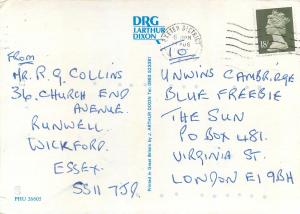 DRG
J.ARTHUR
DIXON
FROM
MR. R. G COLLINS
36, CHURCH END
AVENUE.
RUNWELL
WICKFORD.
ESSEX.
SS11 7JR
PHU 26605
Printed in Great Britain by J. ARTHUR DIXON Tel: 0983 523381
18P
TO
UNWINS CAMBRIDGE
BLUE FREEBIE
THE SUN
PO BOX 481.
VIRGINIA ST.
LONDON E1 9BH